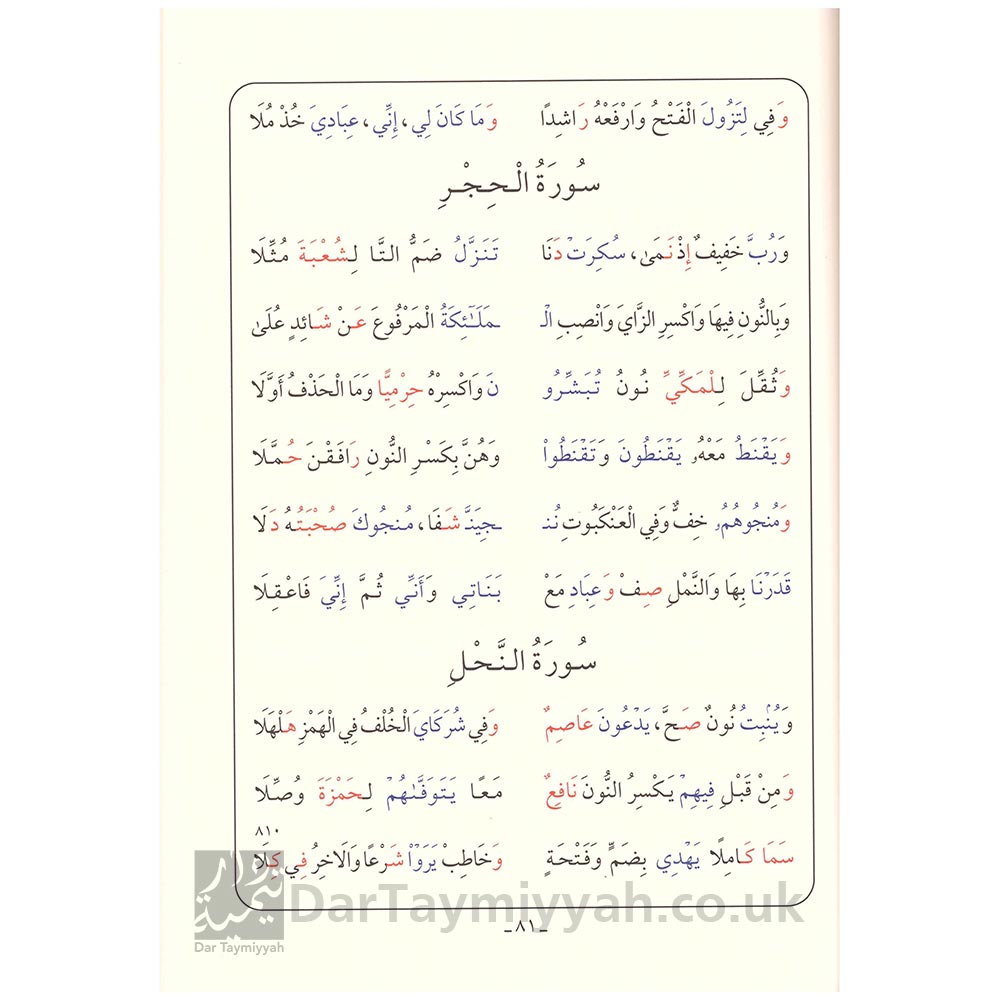 وَفِي لِتَزُولَ الْفَتْحُ وَارْفَعْهُ رَاشِدًا وَمَا كَانَ لِي، إِنِّي، عِبَادِيَ خُذْ مُلَا
سُورَةُ الْحِجْرِ
وَرُبَّ خَفِيفٌ إِذْ نَمَى، سُكِرَتْ دَنَا تَنَزَّلُ ضَمُّ التَّا لِشُعْبَةَ مُثِّلَا
وَبِالنُّونِ فِيهَا وَاكْسِرِ الزَّايَ وَانْصِبِ الْـ ـمَلَٰٓئِكَةُ الْمَرْفُوعَ عَنْ شَائِدٍ عُلَى
وَثُقِّلَ لِلْمَكِّيِّ نُونُ تُبَشِّرُو نَ وَاكْسِرْهُ حِرْمِيًّا وَمَا الْحَذْفُ أَوَّلَا
وَيَقْنَطُ مَعْهُۥ يَقْنَطُونَ وَتَقْنَطُوا۟ وَهُنَّ بِكَسْرِ النُّونِ رَافَقْنَ حُمَّلَا
وَمُنجُوهُمُۥ خِفٌّ وَفِي الْعَنْكَبُوتِ نُنـ ـجِيَنَّـ شَفَا، مُنجُوكَ صُحْبَتُهُ دَلَا
قَدَرْنَا بِهَا وَالنَّمْلِ صِفْ وَعِبَادِ مَعْ بَنَاتِي وَأَنِّي ثُمَّ إِنِّيَ فَاعْقِلَا
سُورَةُ النَّحْلِ
وَيُنۢبِتُ نُونٌ صَحَّ، يَدْعُونَ عَاصِمٌ وَفِي شُرَكَايَ الْخُلْفُ فِي الْهَمْزِ هَلْهَلَا
وَمِنْ قَبْلِ فِيهِمْ يَكْسِرُ النُّونَ نَافِعٌ مَعًا يَتَوَفَّىٰهُمْ لِحَمْزَةَ وُصِّلَا
٨١٠
سَمَا كَامِلًا يَهْدِي بِضَمٍّ وَفَتْحَةٍ وَخَاطِبْ يَرَوْا۟ شَرْعًا وَالَاخِرُ فِي كِلَا
ـ ٨١ ـ
DarTaymiyyah.co.uk
دار تيمية
Dar Taymiyyah